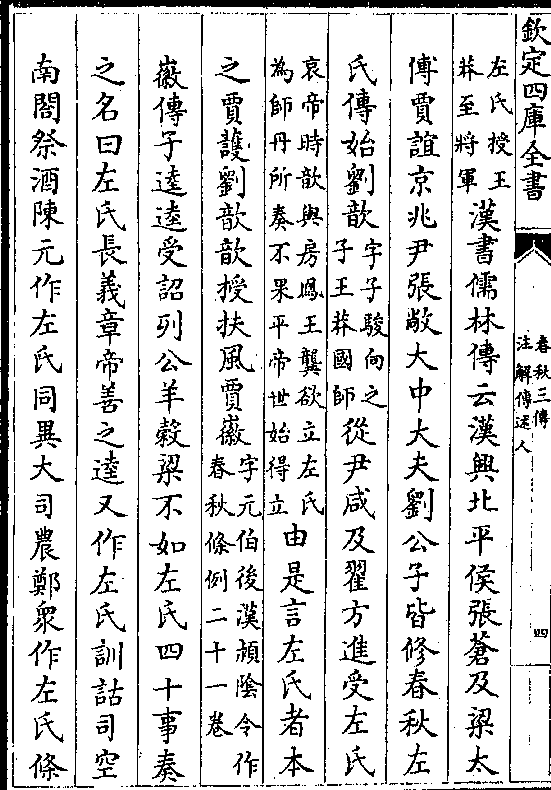 欽定四庫全書
春秋三傳
注解傳述人
四
左氏授王
莽至將軍
漢書儒林傳云漢興北平侯張蒼及梁太
傅賈誼京兆尹張敞大中大夫劉公子皆修春秋左
氏傳始劉歆
字子駿向之
子王莽國師
從尹咸及翟方進受左氏
哀帝時歆與房鳳王龔欲立左氏
為師丹所奏不果平帝世始得立
由是言左氏者本
之賈護劉歆歆授扶風賈徽
字元伯後漢潁陰令作
春秋條例二十一卷
徽傳子逵逵受詔列公羊穀梁不如左氏四十事奏
之名曰左氏長義章帝善之逵又作左氏訓詁司空
南閣祭酒陳元作左氏同異大司農鄭衆作左氏條